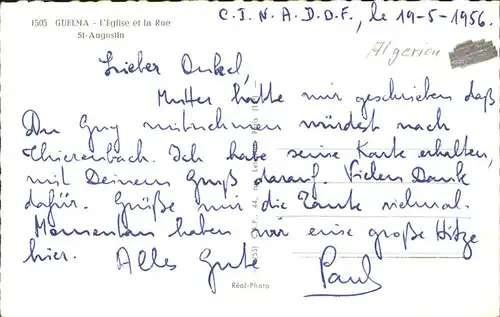 1505 GUELMA - L'Eglise et la Rue
St-Augustin
C.I.N.A.D.D.F., le 19-5-1956.
Algerien
Lieber Onkel,
Mutter hatte mir geschrieben daß
Du Guy mitnehmen würdest nach
Thierenbach. Ich habe seine Karte erhalten,
mit Deinem Gruß darauf. Vielen Dank
dafür. Grüße mir die Tante vielmal.
Momentan haben wir eine große Hitze
hier. Alles Gute
Paul
Réal-Photo